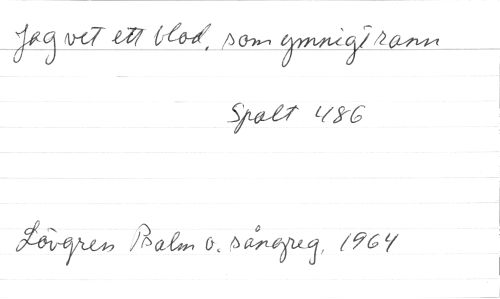 Jag vet ett blod, som ymnigt rann
Spalt 486
Lövgren Psalm o. sångreg. 1964